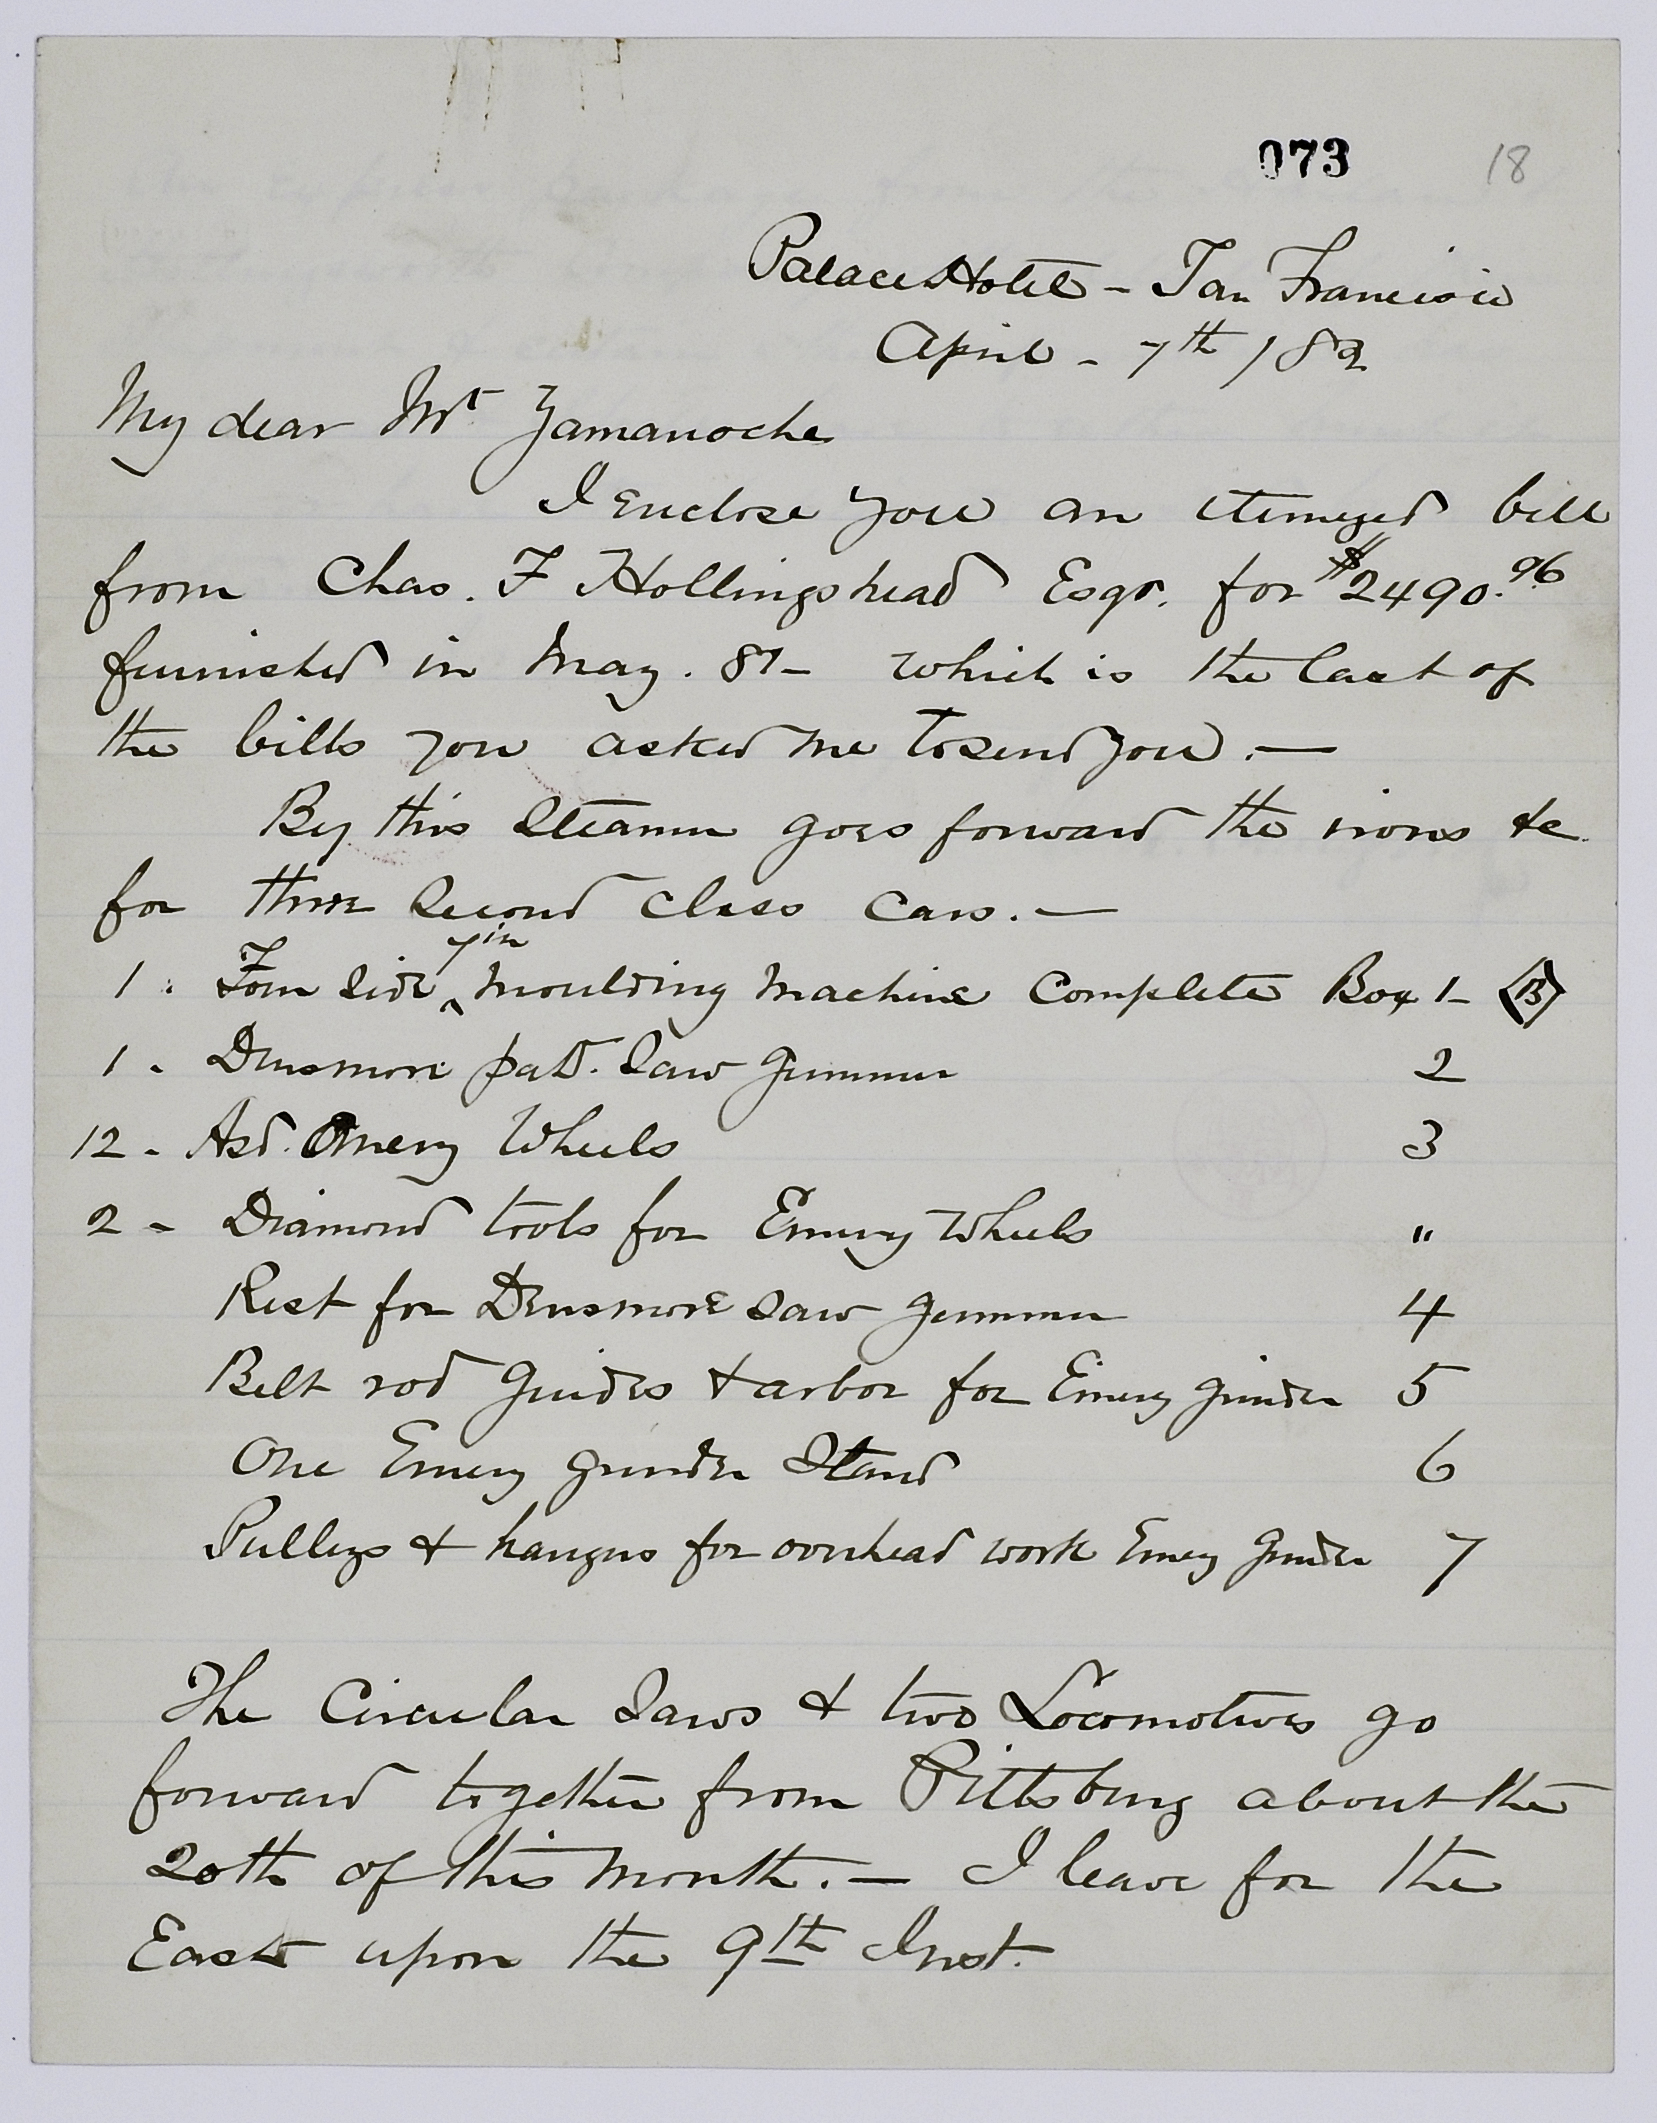 073 18
Palace Hotel - San Francisco
April - 7th / 82
My dear Mr Yamanoche
I Enclose you an itemyed bill
from Chas. F Hollingshead Esqr. for $2490.96
furnished in May. 81- which is the last of
the bills you asked me to send you. —
By this Steamer goes forward the irons &c
for three Second Class Cars. —
1. Four Side 7in Moulding Machine Complete Box 1- B
1. Densmore patt. Saw Gummer 2
12 - Asd. Emery Wheels 3
2 - Diamond tools for Emery Wheels "
Rest for Densmore Saw Gummer 4
Belt rod Guides & arbor for Emery Grinder 5
One Emery Grinder Stand 6
Pulleys & hangers for overhead work Emery Grinder 7
The Circular Saws & two Locomotives go
forward together from Pittsburg about the
20th of this Month. — I leave for the
East upon the 9th Inst.